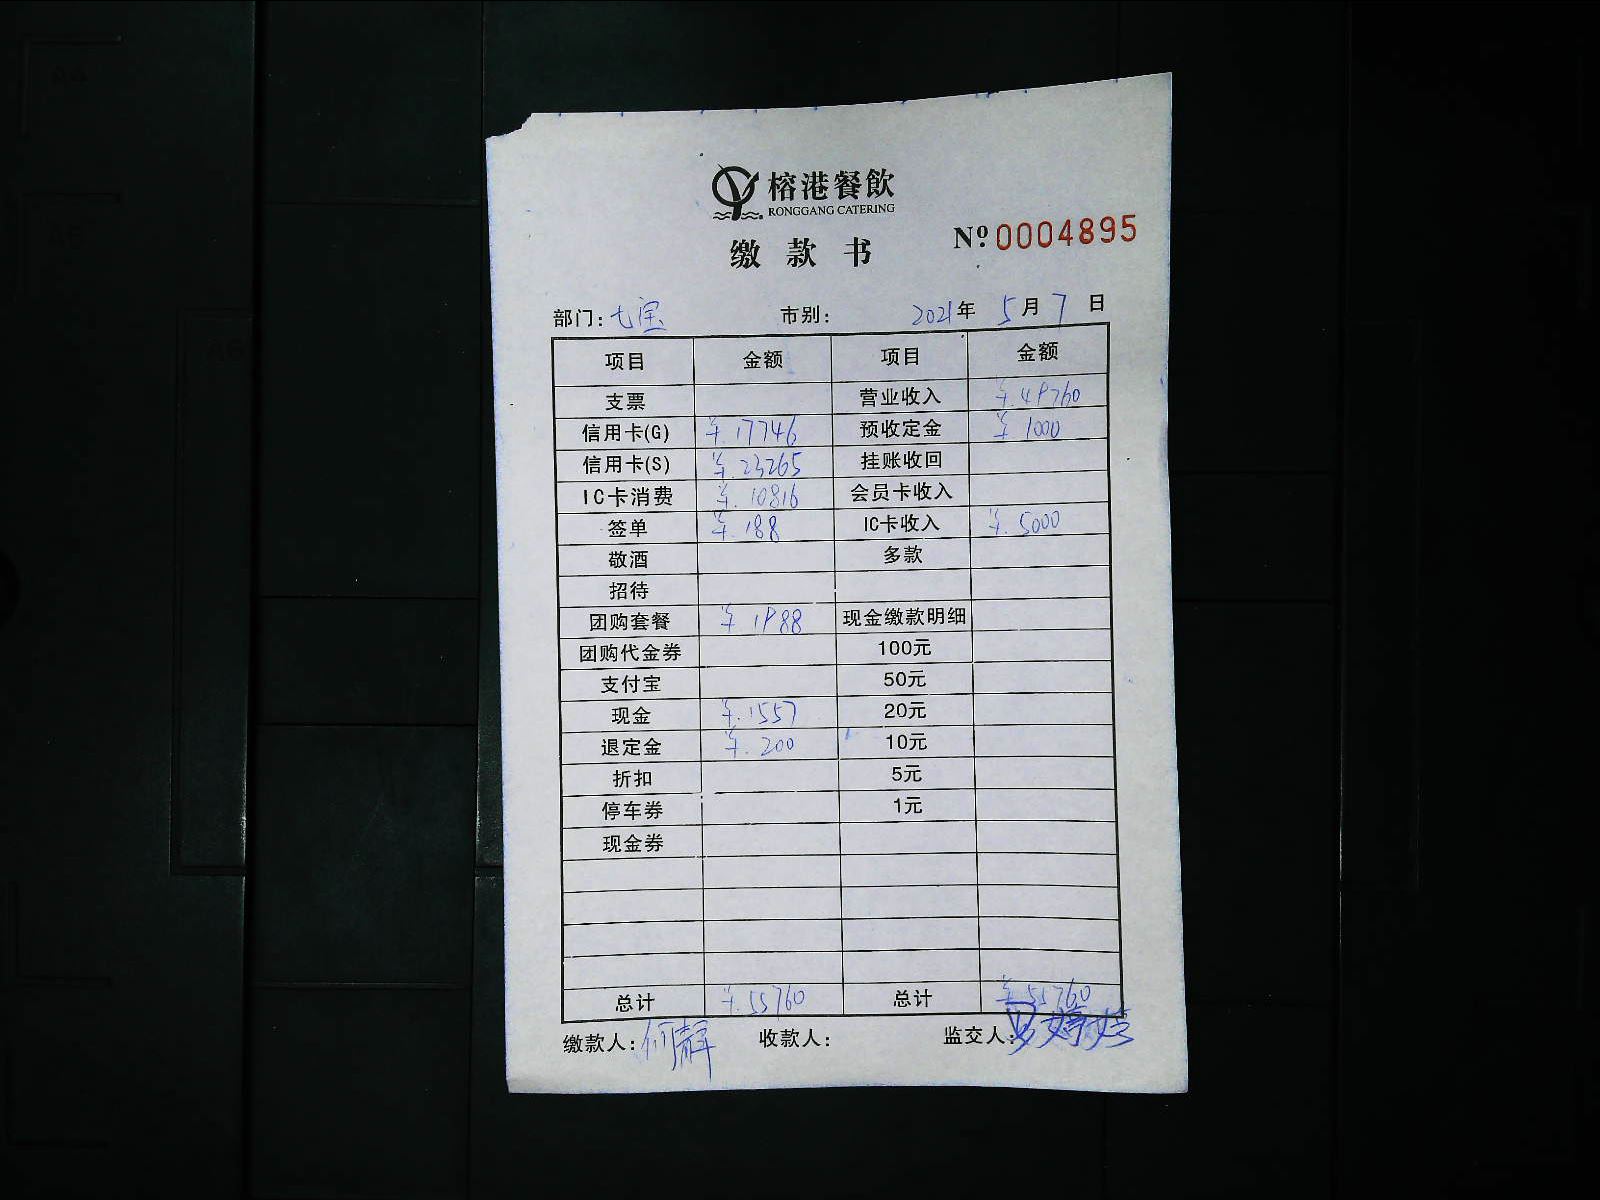 榕港餐飲
RONGGANG CATERING
缴款书
Nº 0004895
部门: 七宝 市别: 2021年 5月 7日
项目 金额 项目 金额
支票 营业收入 ¥.49760
信用卡(G) ¥.17746 预收定金 ¥ 1000
信用卡(S) ¥.23265 挂账收回
IC卡消费 ¥.10816 会员卡收入
签单 ¥.188 IC卡收入 ¥.5000
敬酒 多款
招待
团购套餐 ¥ 1988 现金缴款明细
团购代金券 100元
支付宝 50元
现金 ¥.1557 20元
退定金 ¥.200 10元
折扣 5元
停车券 1元
现金券
总计 ¥.55760 总计 ¥.55760
缴款人: 何静 收款人: 监交人: 罗婷婷